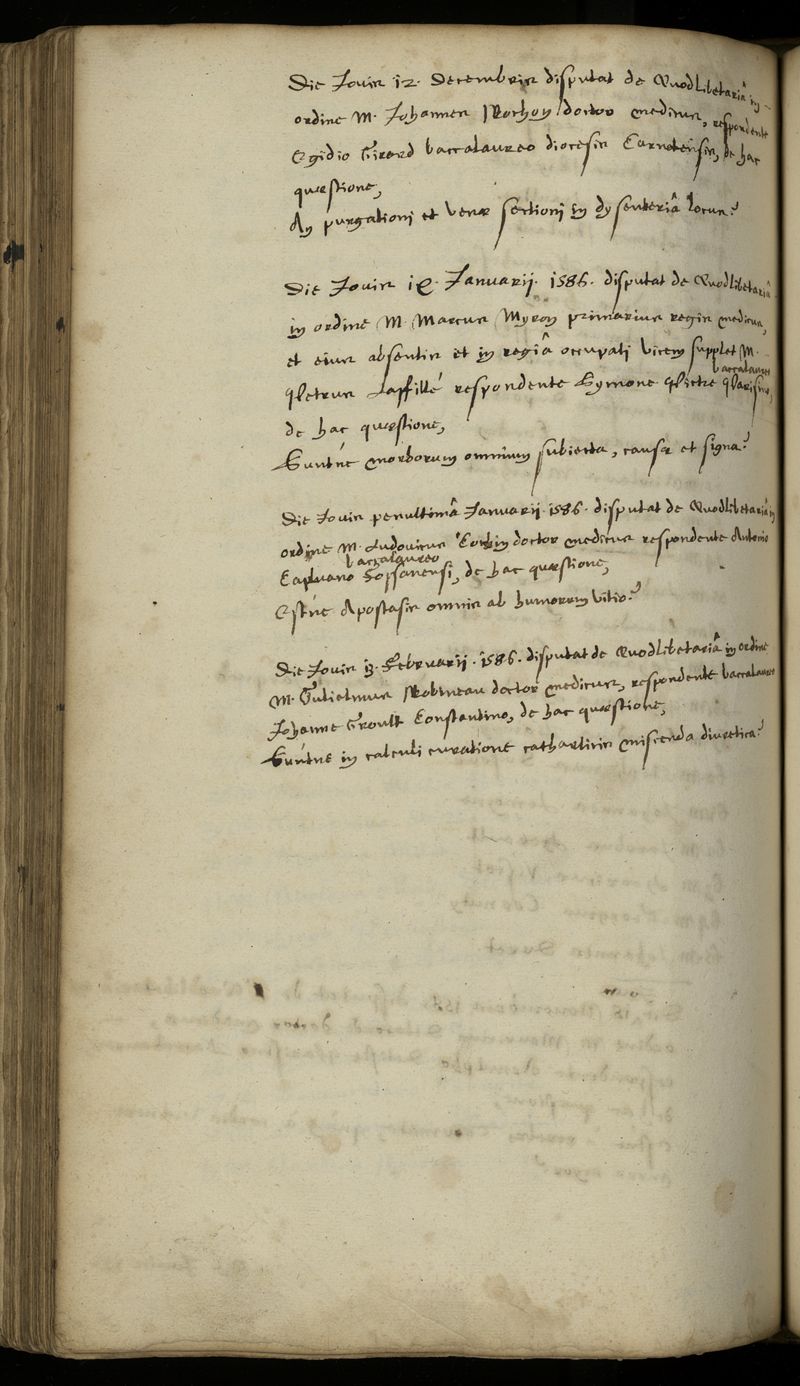 Die Jovis 12. Decembris disputat de Quodlibetariâ in
ordine M. Johannes Rochon doctor medicus, respondente
Egidio Girard baccalaureo diocesis Carnotensis, de hac
quæstione,
An purgationi et venæ sectioni in dysenteriâ locus?
Die Jovis 16. Januarij. 1586. disputat de Quodlibetariâ
in ordine M. Marcus Myron primarius regis medicus,
et eius absentis et in regiâ occupati vicem supplet M.
Petrus Laffilé respondente Symone Pietre baccalaureo Parisino,
de hac quæstione,
Suntne morborum omnium subiecta, causæ et signa?
Die Jovis penultimâ Januarij. 1586. disputat de Quodlibetariâ in
ordine M. Ludovicus doctor medicus respondente Antonio
baccalaureo
de hac quæstione,
Estne Apostasis omnis ab humorum vitio?
Die Jovis 13. Februarij. 1586. disputat de Quodlibetariâ in ordine
M. Gulielmus Robineau doctor medicus, respondente baccalaureo
Johanne Groult Constantino, de hac quæstione,
Suntne in calculi curatione catharticis miscenda diuretica?